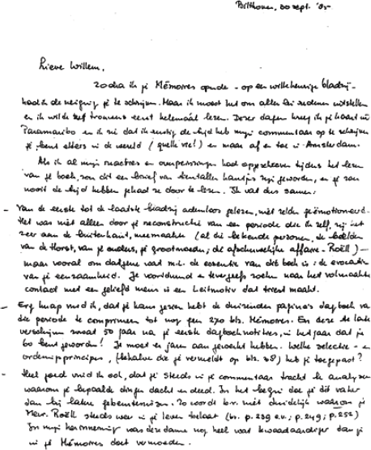 Bilthoven, 20 sept. '05
Lieve Willem,
Zodra ik je Mémoires opende - op een willekeurige bladzij -
had ik de neiging je te schrijven. Maar ik moest het om allerlei redenen uitstellen
en ik wilde zelf trouwens eerst helemaal lezen. Dezer dagen kreeg ik je kaart uit
Paramaribo en ik zie dat ik eindelijk de tijd heb mijn commentaar op te schrijven
je bent elders in de wereld (quelle vie!) en waar af en toe in Amsterdam.
Als ik al mijn reacties en overpeinzingen had opgeschreven tijdens het lezen
van je boek, zou dit een brief van tientallen kantjes zijn geworden, en je zou
nooit de tijd hebben gehad ze door te lezen. Ik vat dus samen:
- Van de eerste tot de laatste bladzij ademloos gelezen, niet zelden geëmotioneerd.
Het was niet alleen door je reconstructie van een periode die ik zelf, zij het
zeer aan de buitenkant, meemaakte (al die bekende personen, de beelden
van de Horst, van je ouders, je grootmoeder, de afschuwelijke affaire - Roëll) -
maar vooral om datgene wat m.i. de essentie van dit boek is: de evocatie
van je eenzaamheid. Je voortdurend en tevergeefs zoeken naar het volmaakte
contact met een geliefd mens is een Leitmotiv dat treft maakt.
- Erg knap vond ik, dat je kans gezien hebt de duizenden pagina's dagboek van
die periode te comprimeren tot nog geen 270 blz. Mémoires. En deze te laten
verschijnen zowat 50 jaar na je eerste dagboeknotities, in het jaar dat je
60 bent geworden! Je moet er jaren aan gewerkt hebben. Welke selectie- en
ordeningsprincipes, (behalve die je vermeldt op blz. 48) heb je toegepast?
- Heel goed vond ik ook, dat je steeds in je commentaar tracht te analyseren
waarom je bepaalde dingen dacht en deed. In het begin doe je dit vaker
dan bij latere gebeurtenissen. Zo wordt b.v. niet duidelijk waarom je
Mevr. Roëll steeds weer in je leven toelaat (bv. p. 239 e.v.; p. 249; p. 252)
In mijn herinnering was deze dame nog heel wat kwaadaardiger dan je
in je Mémoires doet vermoeden.